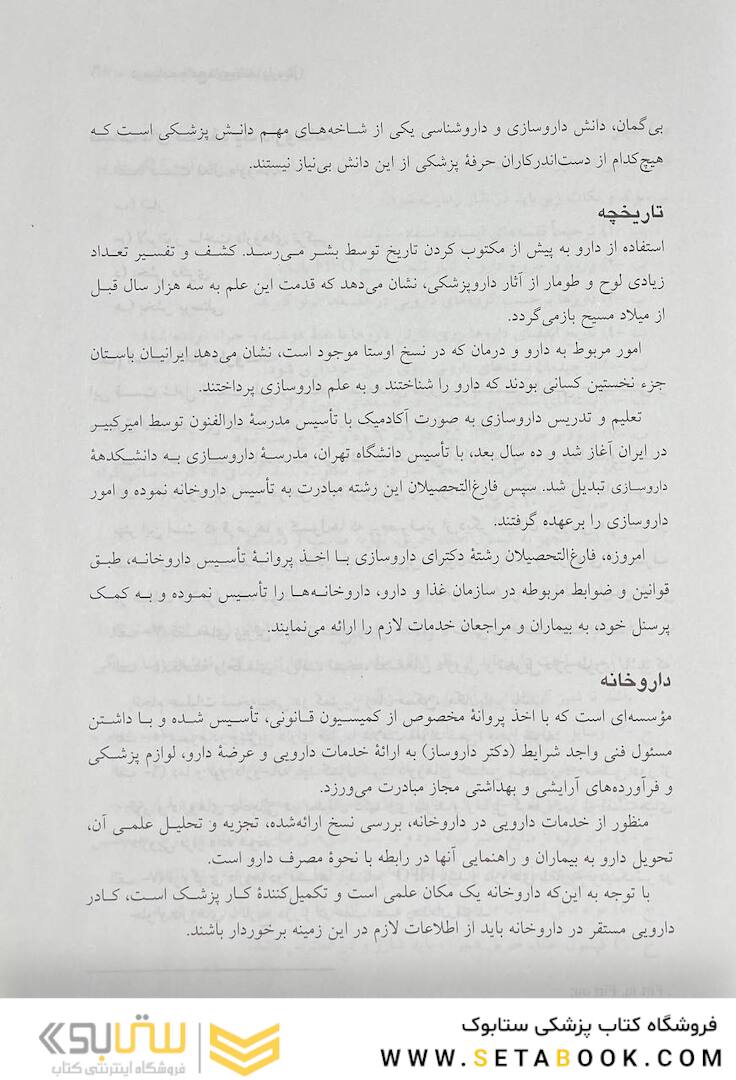 بی‌گمان، دانش داروسازی و داروشناسی یکی از شاخه‌های مهم دانش پزشکی است که
هیچ‌کدام از دست‌اندرکاران حرفهٔ پزشکی از این دانش بی‌نیاز نیستند.
تاریخچه
استفاده از دارو به پیش از مکتوب کردن تاریخ توسط بشر می‌رسد. کشف و تفسیر تعداد
زیادی لوح و طومار از آثار داروپزشکی، نشان می‌دهد که قدمت این علم به سه هزار سال قبل
از میلاد مسیح بازمی‌گردد.
امور مربوط به دارو و درمان که در نسخ اوستا موجود است، نشان می‌دهد ایرانیان باستان
جزء نخستین کسانی بودند که دارو را شناختند و به علم داروسازی پرداختند.
تعلیم و تدریس داروسازی به صورت آکادمیک با تأسیس مدرسهٔ دارالفنون توسط امیرکبیر
در ایران آغاز شد و ده سال بعد، با تأسیس دانشگاه تهران، مدرسهٔ داروسازی به دانشکدهٔ
داروسازی تبدیل شد. سپس فارغ‌التحصیلان این رشته مبادرت به تأسیس داروخانه نموده و امور
داروسازی را برعهده گرفتند.
امروزه، فارغ‌التحصیلان رشتهٔ دکترای داروسازی با اخذ پروانهٔ تأسیس داروخانه، طبق
قوانین و ضوابط مربوطه در سازمان غذا و دارو، داروخانه‌ها را تأسیس نموده و به کمک
پرسنل خود، به بیماران و مراجعان خدمات لازم را ارائه می‌نمایند.
داروخانه
مؤسسه‌ای است که با اخذ پروانهٔ مخصوص از کمیسیون قانونی، تأسیس شده و با داشتن
مسئول فنی واجد شرایط (دکتر داروساز) به ارائهٔ خدمات دارویی و عرضهٔ دارو، لوازم پزشکی
و فرآورده‌های آرایشی و بهداشتی مجاز مبادرت می‌ورزد.
منظور از خدمات دارویی در داروخانه، بررسی نسخ ارائه‌شده، تجزیه و تحلیل علمی آن،
تحویل دارو به بیماران و راهنمایی آنها در رابطه با نحوهٔ مصرف دارو است.
با توجه به این‌که داروخانه یک مکان علمی است و تکمیل‌کنندهٔ کار پزشک است، کادر
دارویی مستقر در داروخانه باید از اطلاعات لازم در این زمینه برخوردار باشند.
فروشگاه کتاب پزشکی ستابوک
WWW.SETABOOK.COM
ستابوک
فروشگاه اینترنتی کتاب